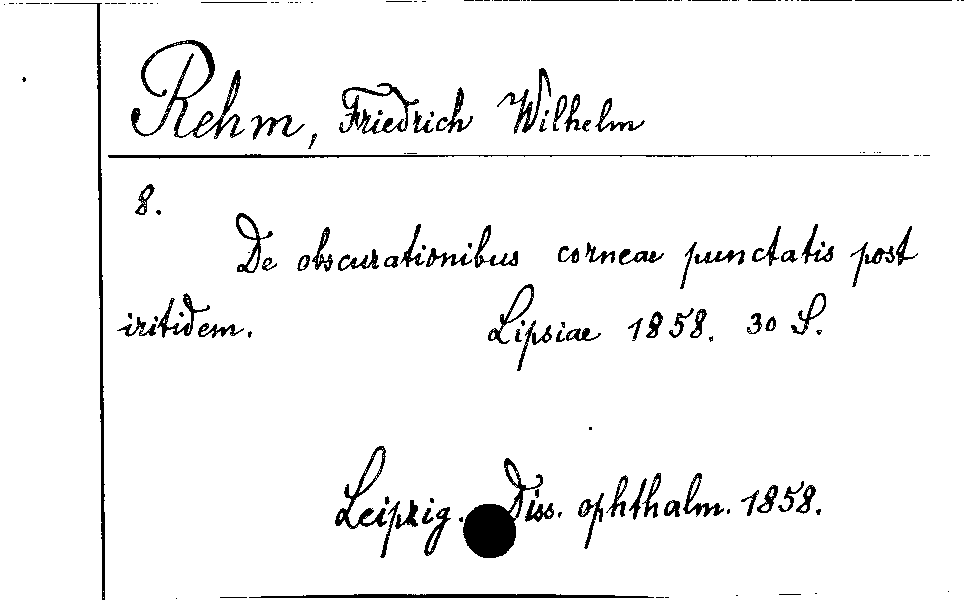 Rehm, Friedrich Wilhelm
8.
De obscurationibus corneae punctatis post
iritidem. Lipsiae 1858. 30 S.
Leipzig. Diss. ophthalm. 1858.